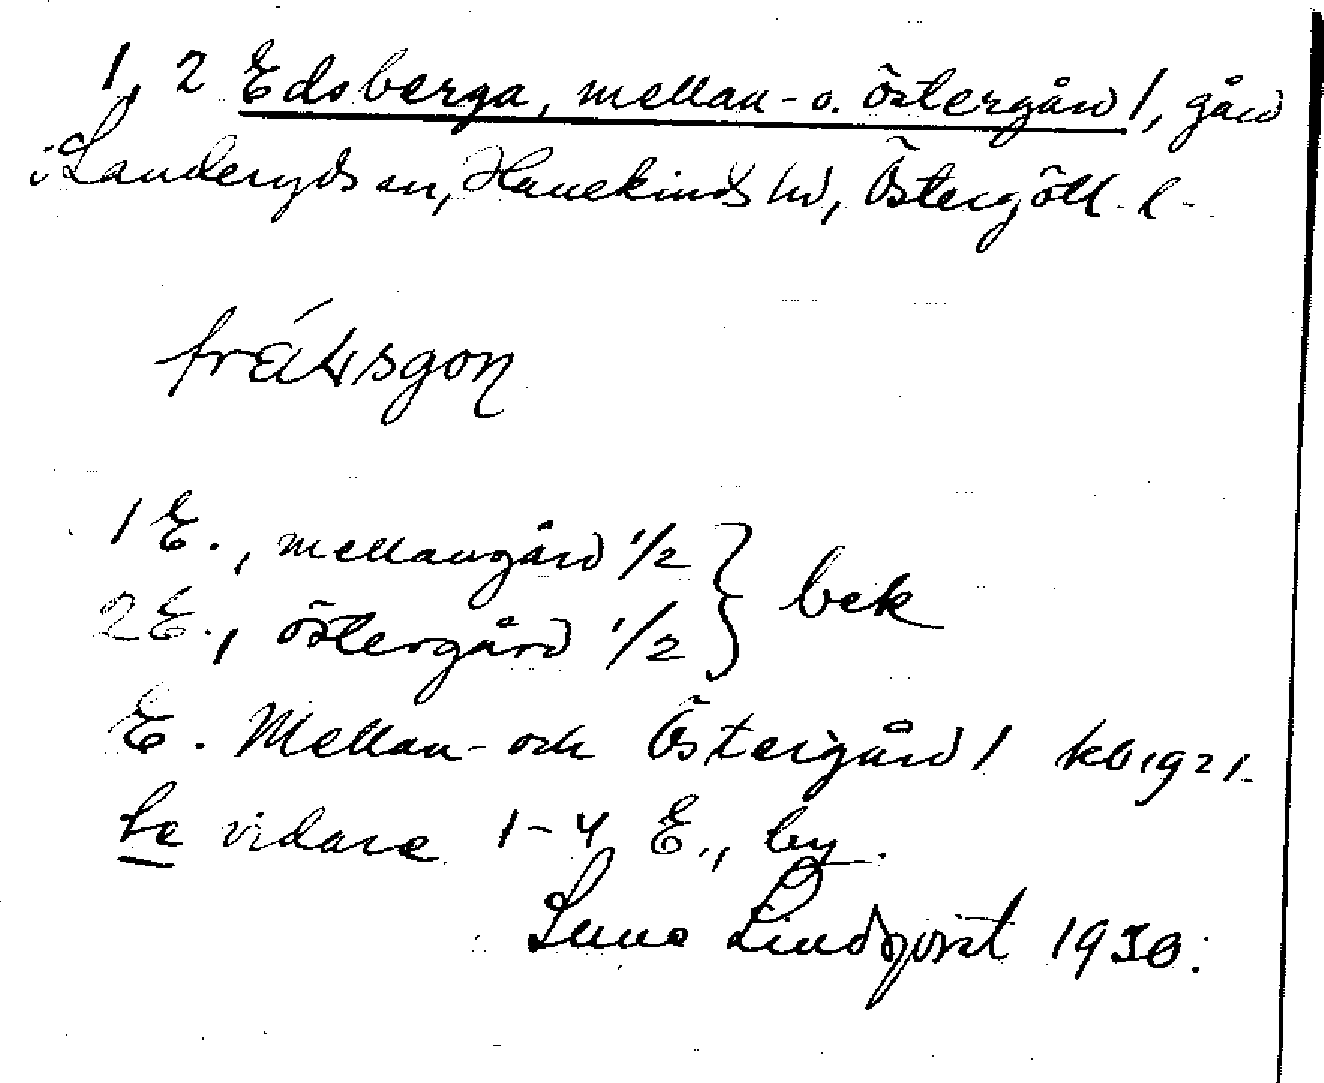 1, 2 Edsberga, mellan- o. östergård 1, gård
i Landeryds sn, Hanekinds hd, Östergötl. l.
1 E., mellangård 1/2 } bek
2 E., östergård 1/2
E. Mellan- och Östergård 1 kb 1921.
Se vidare 1-4 E., by.
Sune Lindqvist 1930.